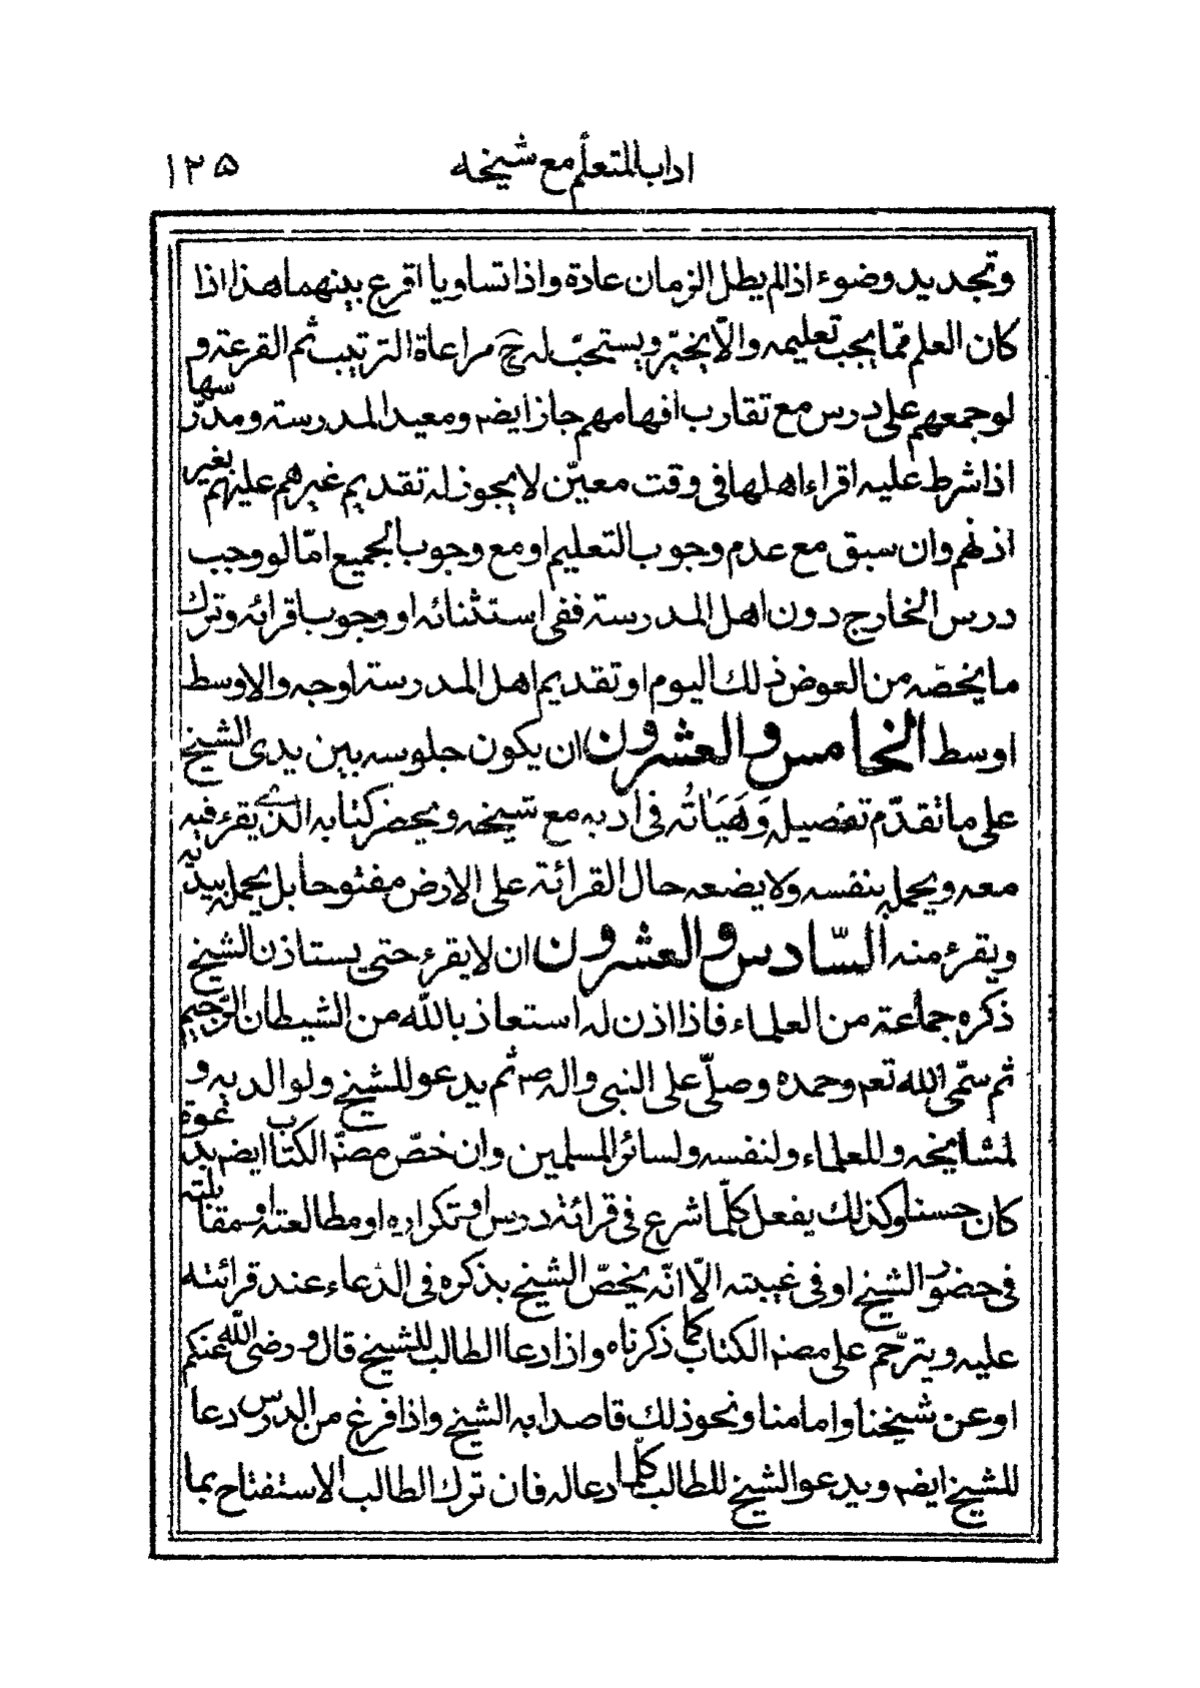 اداب المتعلّم مع شيخه ١٢٥
وتجديد وضوء اذا لم يطل الزمان عادة واذا تساويا اقرع بينهما هذا اذا
كان العلم ممّا يجب تعليمه والّا يخيّر ويستحبّ له ح مراعاة الترتيب ثم القرعة و
لو جمعهم على درس مع تقارب افهامهم جاز ايضم ومعيد المدرسة ومدرّسها
اذا شرط عليه اقراء اهلها فى وقت معيّن لا يجوز له تقديم غيرهم عليهم بغير
اذنهم وان سبق مع عدم وجوب التعليم او مع وجوب الجميع امّا لو وجب
درس الخارج دون اهل المدرسة ففى استثنائه او وجوب اقرائه وترك
ما يخصّه من العوض ذلك اليوم او تقديم اهل المدرسة اوجه والاوسط
اوسط الخامس والعشرون ان يكون جلوسه بين يدى الشيخ
على ما تقدّم تفصيله وَهَيَاتُه فى ادبه مع شيخه ويحضر كتابه الذي يقرء فيه
معه ويحمله بنفسه ولا يضعه حال القرائة على الارض مفتوحا بل يحمله بيديه
ويقرء منه السّادس والعشرون ان لا يقرء حتى يستاذن الشيخ
ذكره جماعة من العلماء فاذا اذن له استعاذ بالله من الشيطان الرّجيم
ثم سمّى الله تعم وحمده وصلّى على النبى واله صم ثم يدعو للشيخ ولوالديه و
لمشايخه وللعلماء ولنفسه ولسائر المسلمين وان خصّ مصنّم الكتاب ايضم بدعوة
كان حسنا وكذلك يفعل كلّما شرع فى قرائة درس او تكراره او مطالعته او مقابلته
فى حضور الشيخ او فى غيبته الّا انّه يخصّ الشيخ بذكره فى الدعاء عند قرائته
عليه ويترحّم على مصنم الكتاب كما ذكرناه واذا دعا الطالب للشيخ قال و رضى الله عنكم
او عن شيخنا وامامنا ونحو ذلك قاصدا به الشيخ واذا فرغ من الدرس دعا
للشيخ ايضم ويدعو الشيخ للطالب كلّما دعا له فان ترك الطالب الاستفتاح بما